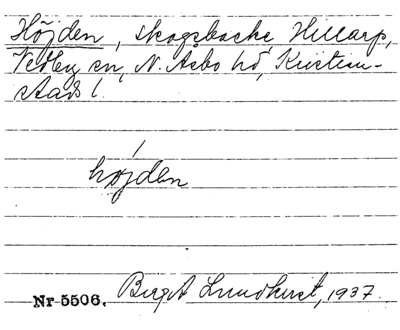 Höjden, skogsbacke, Hillarp,
Vedby sn, N. Åsbo hd, Kristian-
stads l.
höjden
Nr 5506. Birgit Lundkvist, 1937.